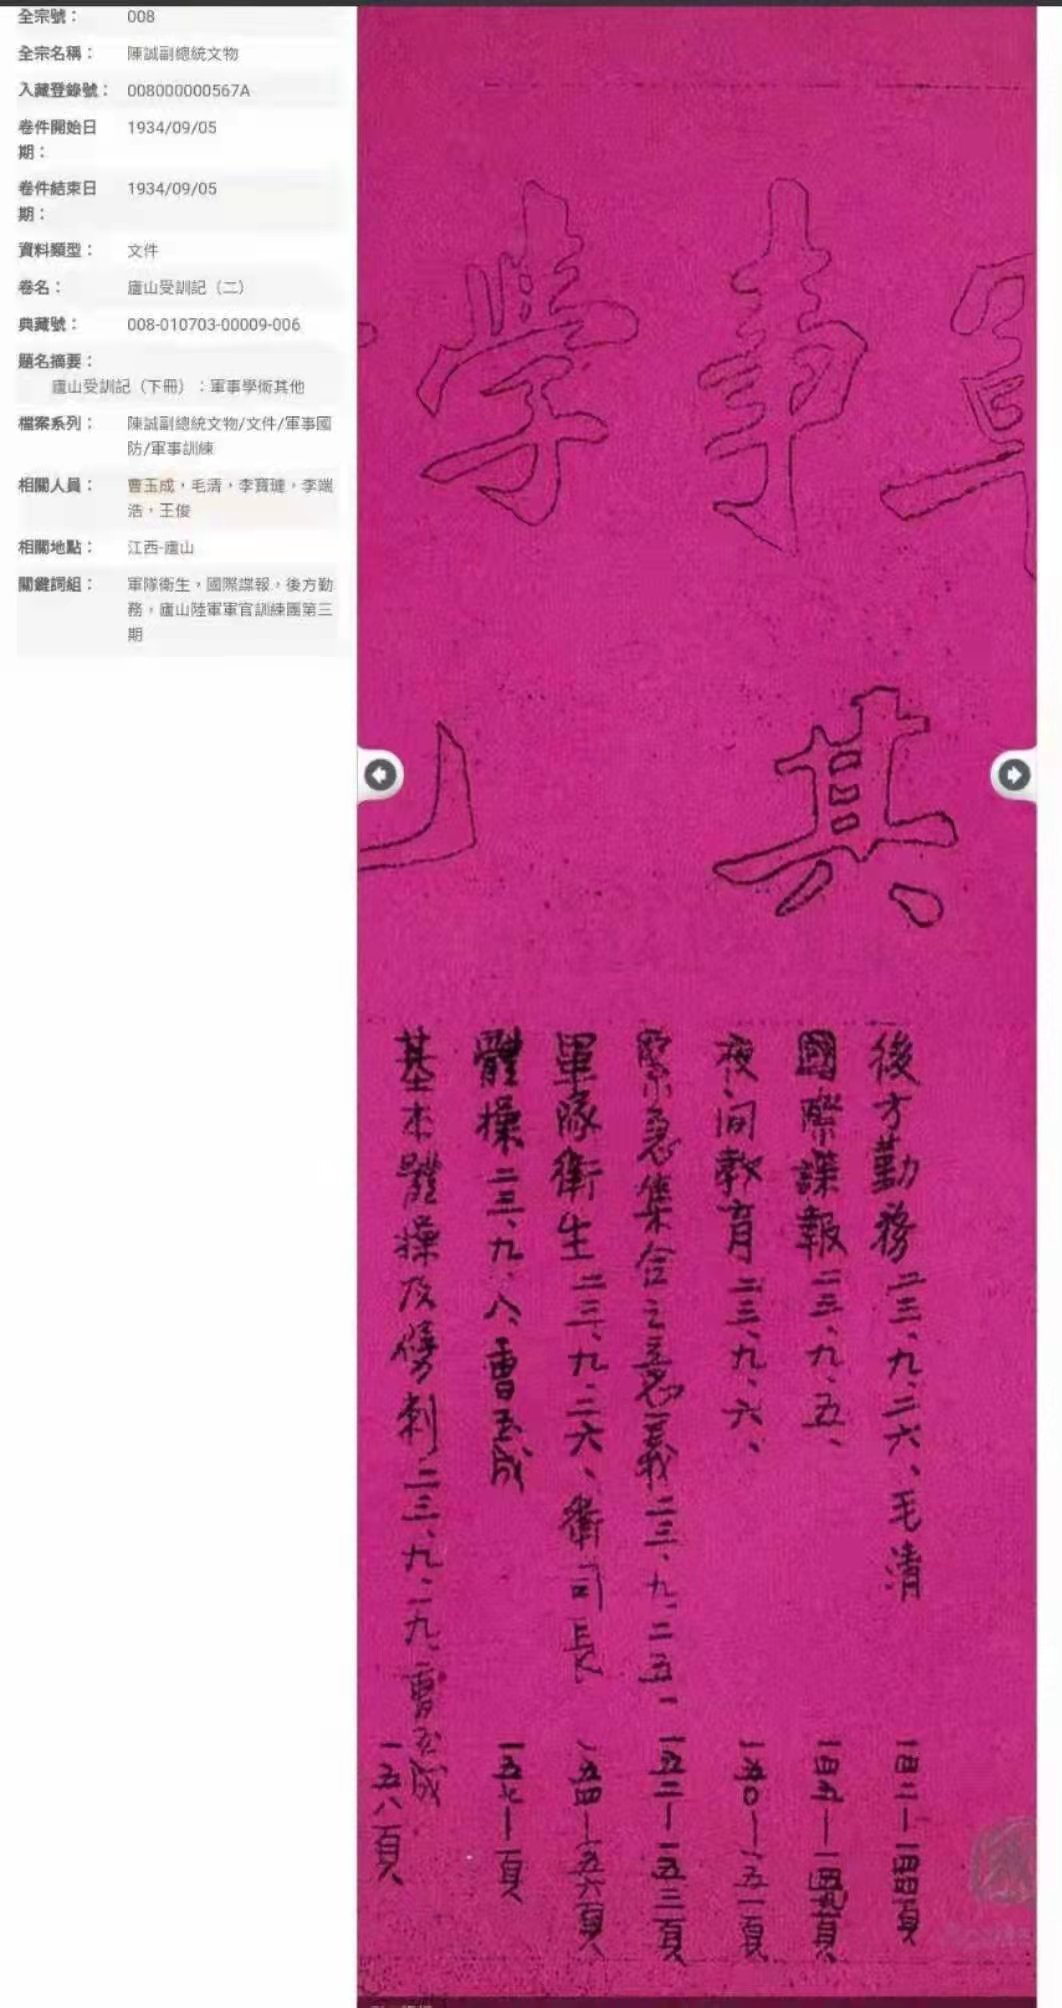 全宗號： 008
全宗名稱： 陳誠副總統文物
入藏登錄號： 008000000567A
卷件開始日期： 1934/09/05
卷件結束日期： 1934/09/05
資料類型： 文件
卷名： 廬山受訓記（二）
典藏號： 008-010703-00009-006
題名摘要：
廬山受訓記（下冊）：軍事學術其他
檔案系列： 陳誠副總統文物/文件/軍事國
防/軍事訓練
相關人員： 曹玉成，毛清，李寶璉，李端
浩，王俊
相關地點： 江西-廬山
關鍵詞組： 軍隊衛生，國際諜報，後方勤
務，廬山陸軍軍官訓練團第三
期
軍事學
其
後方勤務二三、九、二六、毛清 一四二—一四四頁
國際諜報二三、九、五、 一四五—一四九頁
夜间教育二三、九、六、 一五〇—一五一頁
緊急集合之意義二三、九、二五、 一五二—一五三頁
軍隊衛生二三、九、二六、衛司長 一五四—一五六頁
體操二三、九、八、曹玉成 一五七—頁
基本體操及劈刺二三、九、二九、曹玉成 一五八頁